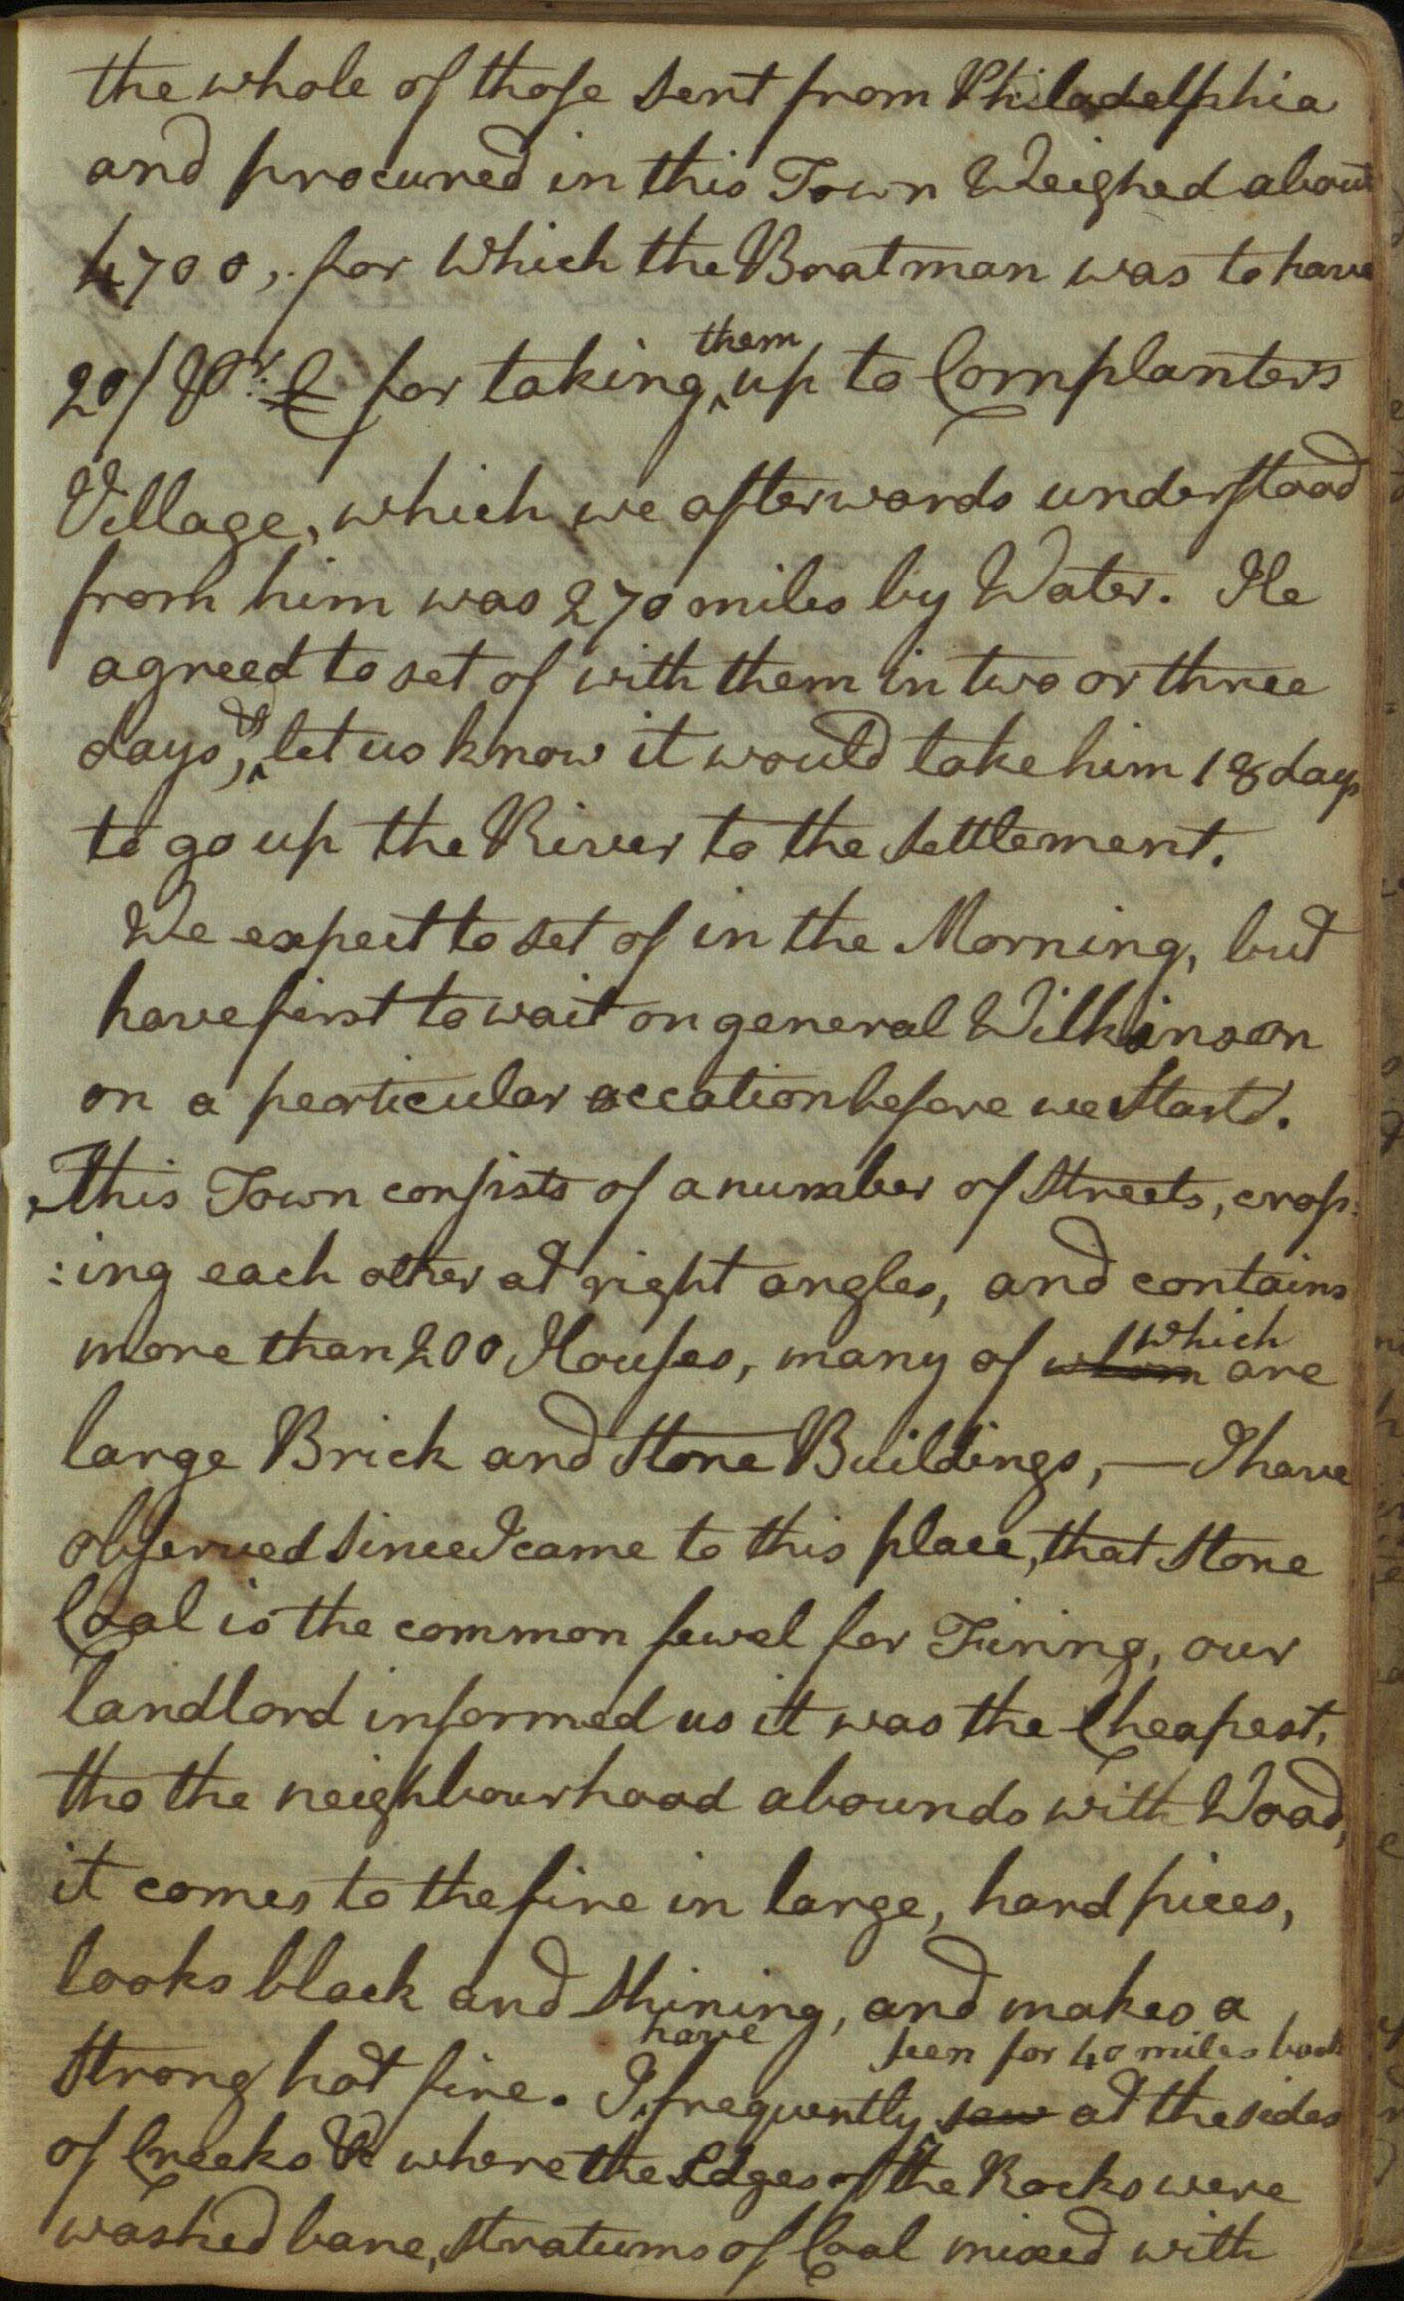 the whole of those sent from Philadelphia
and procured in this Town Weighed about
4700, for Which the Boatman was to have
20/ ⅌r. C for taking them up to Cornplanters
Village, which we afterwards understood
from him was 270 miles by Water. He
agreed to set of with them in two or three
days, & let us know it would take him 18 days
to go up the River to the settlement.
We expect to set of in the Morning, but
have first to wait on general Wilkinson
on a perticular occation before we Start.
This Town consists of a number of Streets, cross:
:ing each other at right angles, and contains
more than 200 Houses, many of whom which are
large Brick and Stone Buildings, — I have
observed since I came to this place, that Stone
Coal is the common fewel for Firing, our
landlord informed us it was the Cheapest,
tho the neighbourhood abounds with Wood,
it comes to the fire in large, hard pices,
looks black and Shining, and makes a
Strong hot fire. I have frequently saw seen for 40 miles back at the sides
of Creeks &c where the Edges of the Rocks were
washed bare, stratums of Coal mixed with